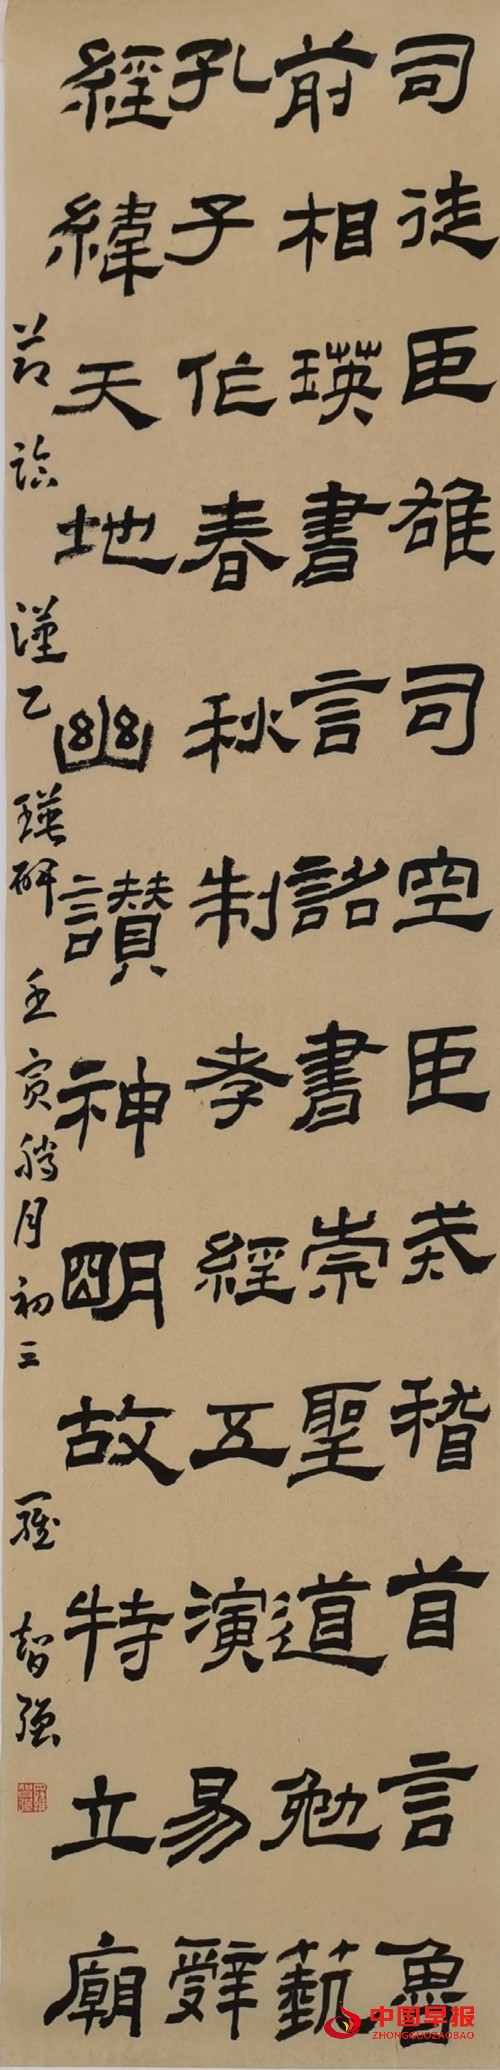 司徒臣雄司空臣戒稽首言魯
前相瑛書言詔書崇聖道勉蓺
孔子作春秋制孝經五演易辭
經緯天地幽讚神明故特立廟
節臨漢乙瑛碑 壬寅臘月初三 羅智強
中国早报
ZHONGGUOZAOBAO